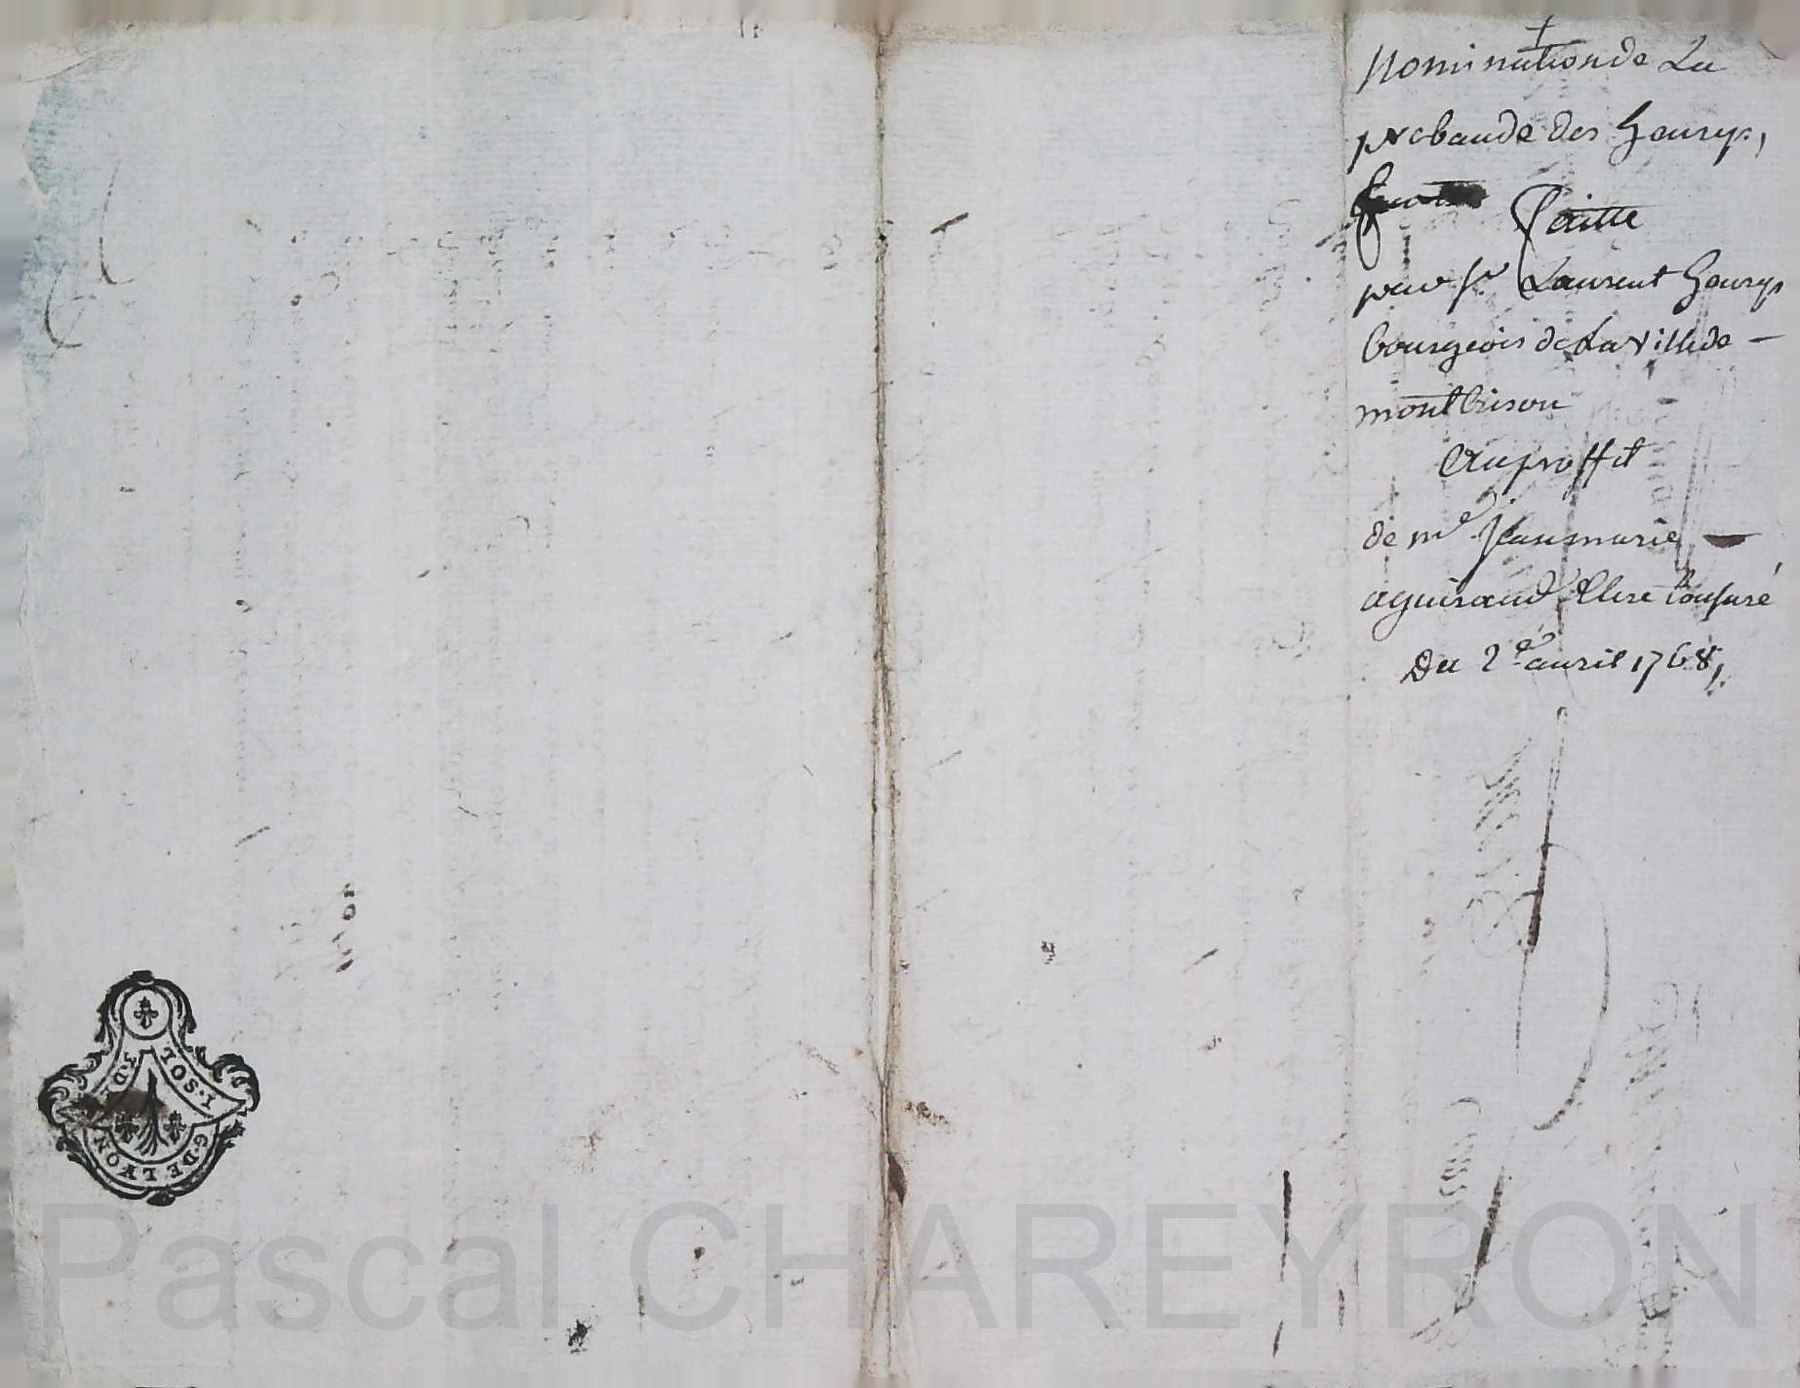 +
Nomination de La
prebande des henrys,
faitte
par Sr Laurent henrys
bourgeois de La Ville de -
montbrison
Au proffit
de me Jean marie -
aguiraud Clerc tonsuré
Du 2e avril 1768,
1. SOL
3. D.
G. DE LYON
Pascal CHAREYRON